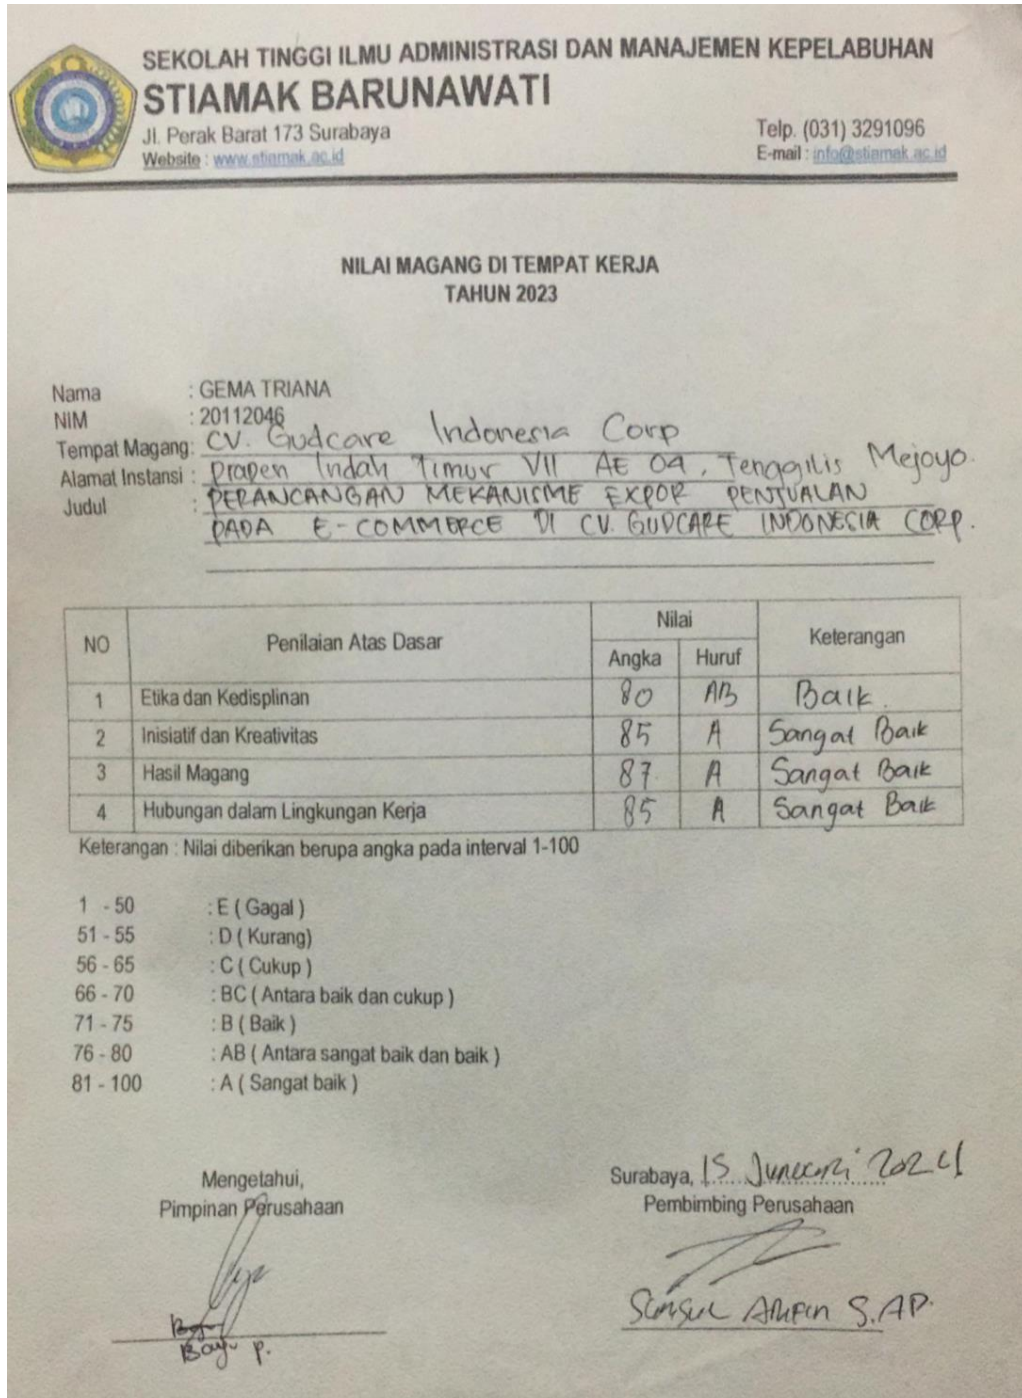 SEKOLAH TINGGI ILMU ADMINISTRASI DAN MANAJEMEN KEPELABUHAN
STIAMAK BARUNAWATI
Jl. Perak Barat 173 Surabaya Telp. (031) 3291096
Website : www.stiamak.ac.id E-mail : info@stiamak.ac.id
NILAI MAGANG DI TEMPAT KERJA
TAHUN 2023
Nama : GEMA TRIANA
NIM : 20112046
Tempat Magang: CV. Gudcare Indonesia Corp
Alamat Instansi : Prapen Indah Timur VII AE 04, Tenggilis Mejoyo.
Judul : PERANCANGAN MEKANISME EXPOR PENJUALAN
PADA E-COMMERCE DI CV. GUDCARE INDONESIA CORP.
NO Penilaian Atas Dasar Nilai Keterangan
Angka Huruf
1 Etika dan Kedisplinan 80 AB Baik.
2 Inisiatif dan Kreativitas 85 A Sangat Baik
3 Hasil Magang 87 A Sangat Baik
4 Hubungan dalam Lingkungan Kerja 85 A Sangat Baik
Keterangan : Nilai diberikan berupa angka pada interval 1-100
1 - 50 : E ( Gagal )
51 - 55 : D ( Kurang)
56 - 65 : C ( Cukup )
66 - 70 : BC ( Antara baik dan cukup )
71 - 75 : B ( Baik )
76 - 80 : AB ( Antara sangat baik dan baik )
81 - 100 : A ( Sangat baik )
Mengetahui, Surabaya, 15 2024
Pimpinan Perusahaan Pembimbing Perusahaan
Arifin S.AP.
Bayu P.